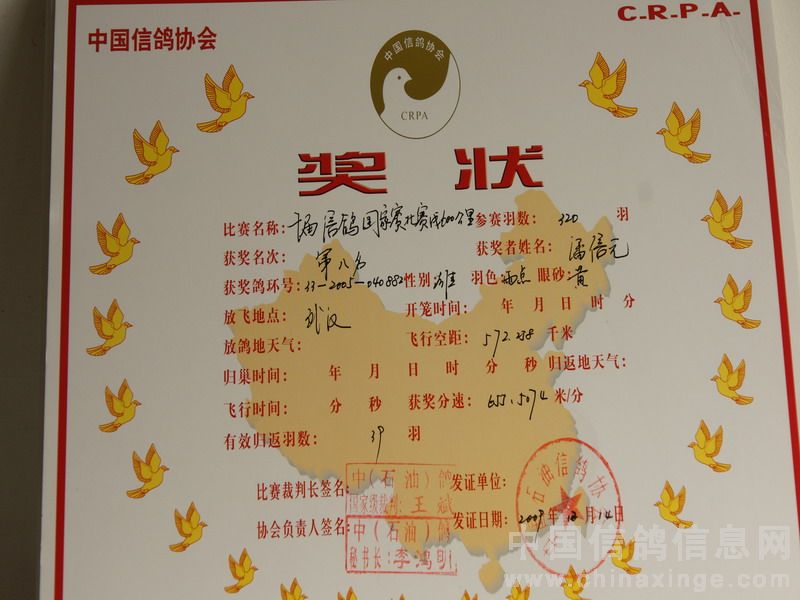 C-R-P-A-
中国信鸽协会
中国信鸽协会
CRPA
奖状
比赛名称: 信鸽国家赛 赛区600公里 参赛羽数: 320 羽
获奖名次: 第八名 获奖者姓名: 潘信元
获奖鸽环号: 33-2005-040882 性别 雄 羽色 雨点 眼砂: 黄
放飞地点: 开笼时间: 年 月 日 时 分
放鸽地天气: 飞行空距: 572.238 千米
归巢时间: 年 月 日 时 分 秒 归返地天气:
飞行时间: 分 秒 获奖分速: 655.5074 米/分
有效归返羽数: 39 羽
比赛裁判长签名: 中(石油)鸽 国家级裁判: 王斌 发证单位:
协会负责人签名: 中(石油)鸽 秘书长: 李鸿明 发证日期: 2009年12月14日
石油信鸽协
中国信鸽信息网
www.chinaxinge.com